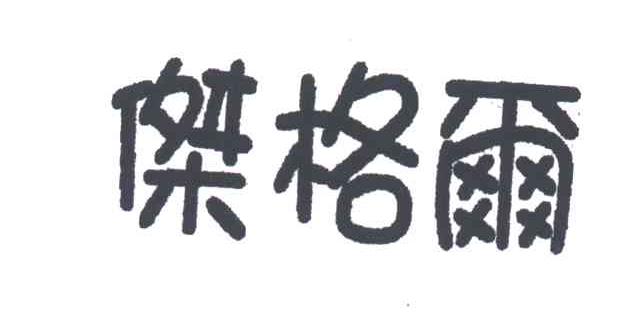 傑格爾